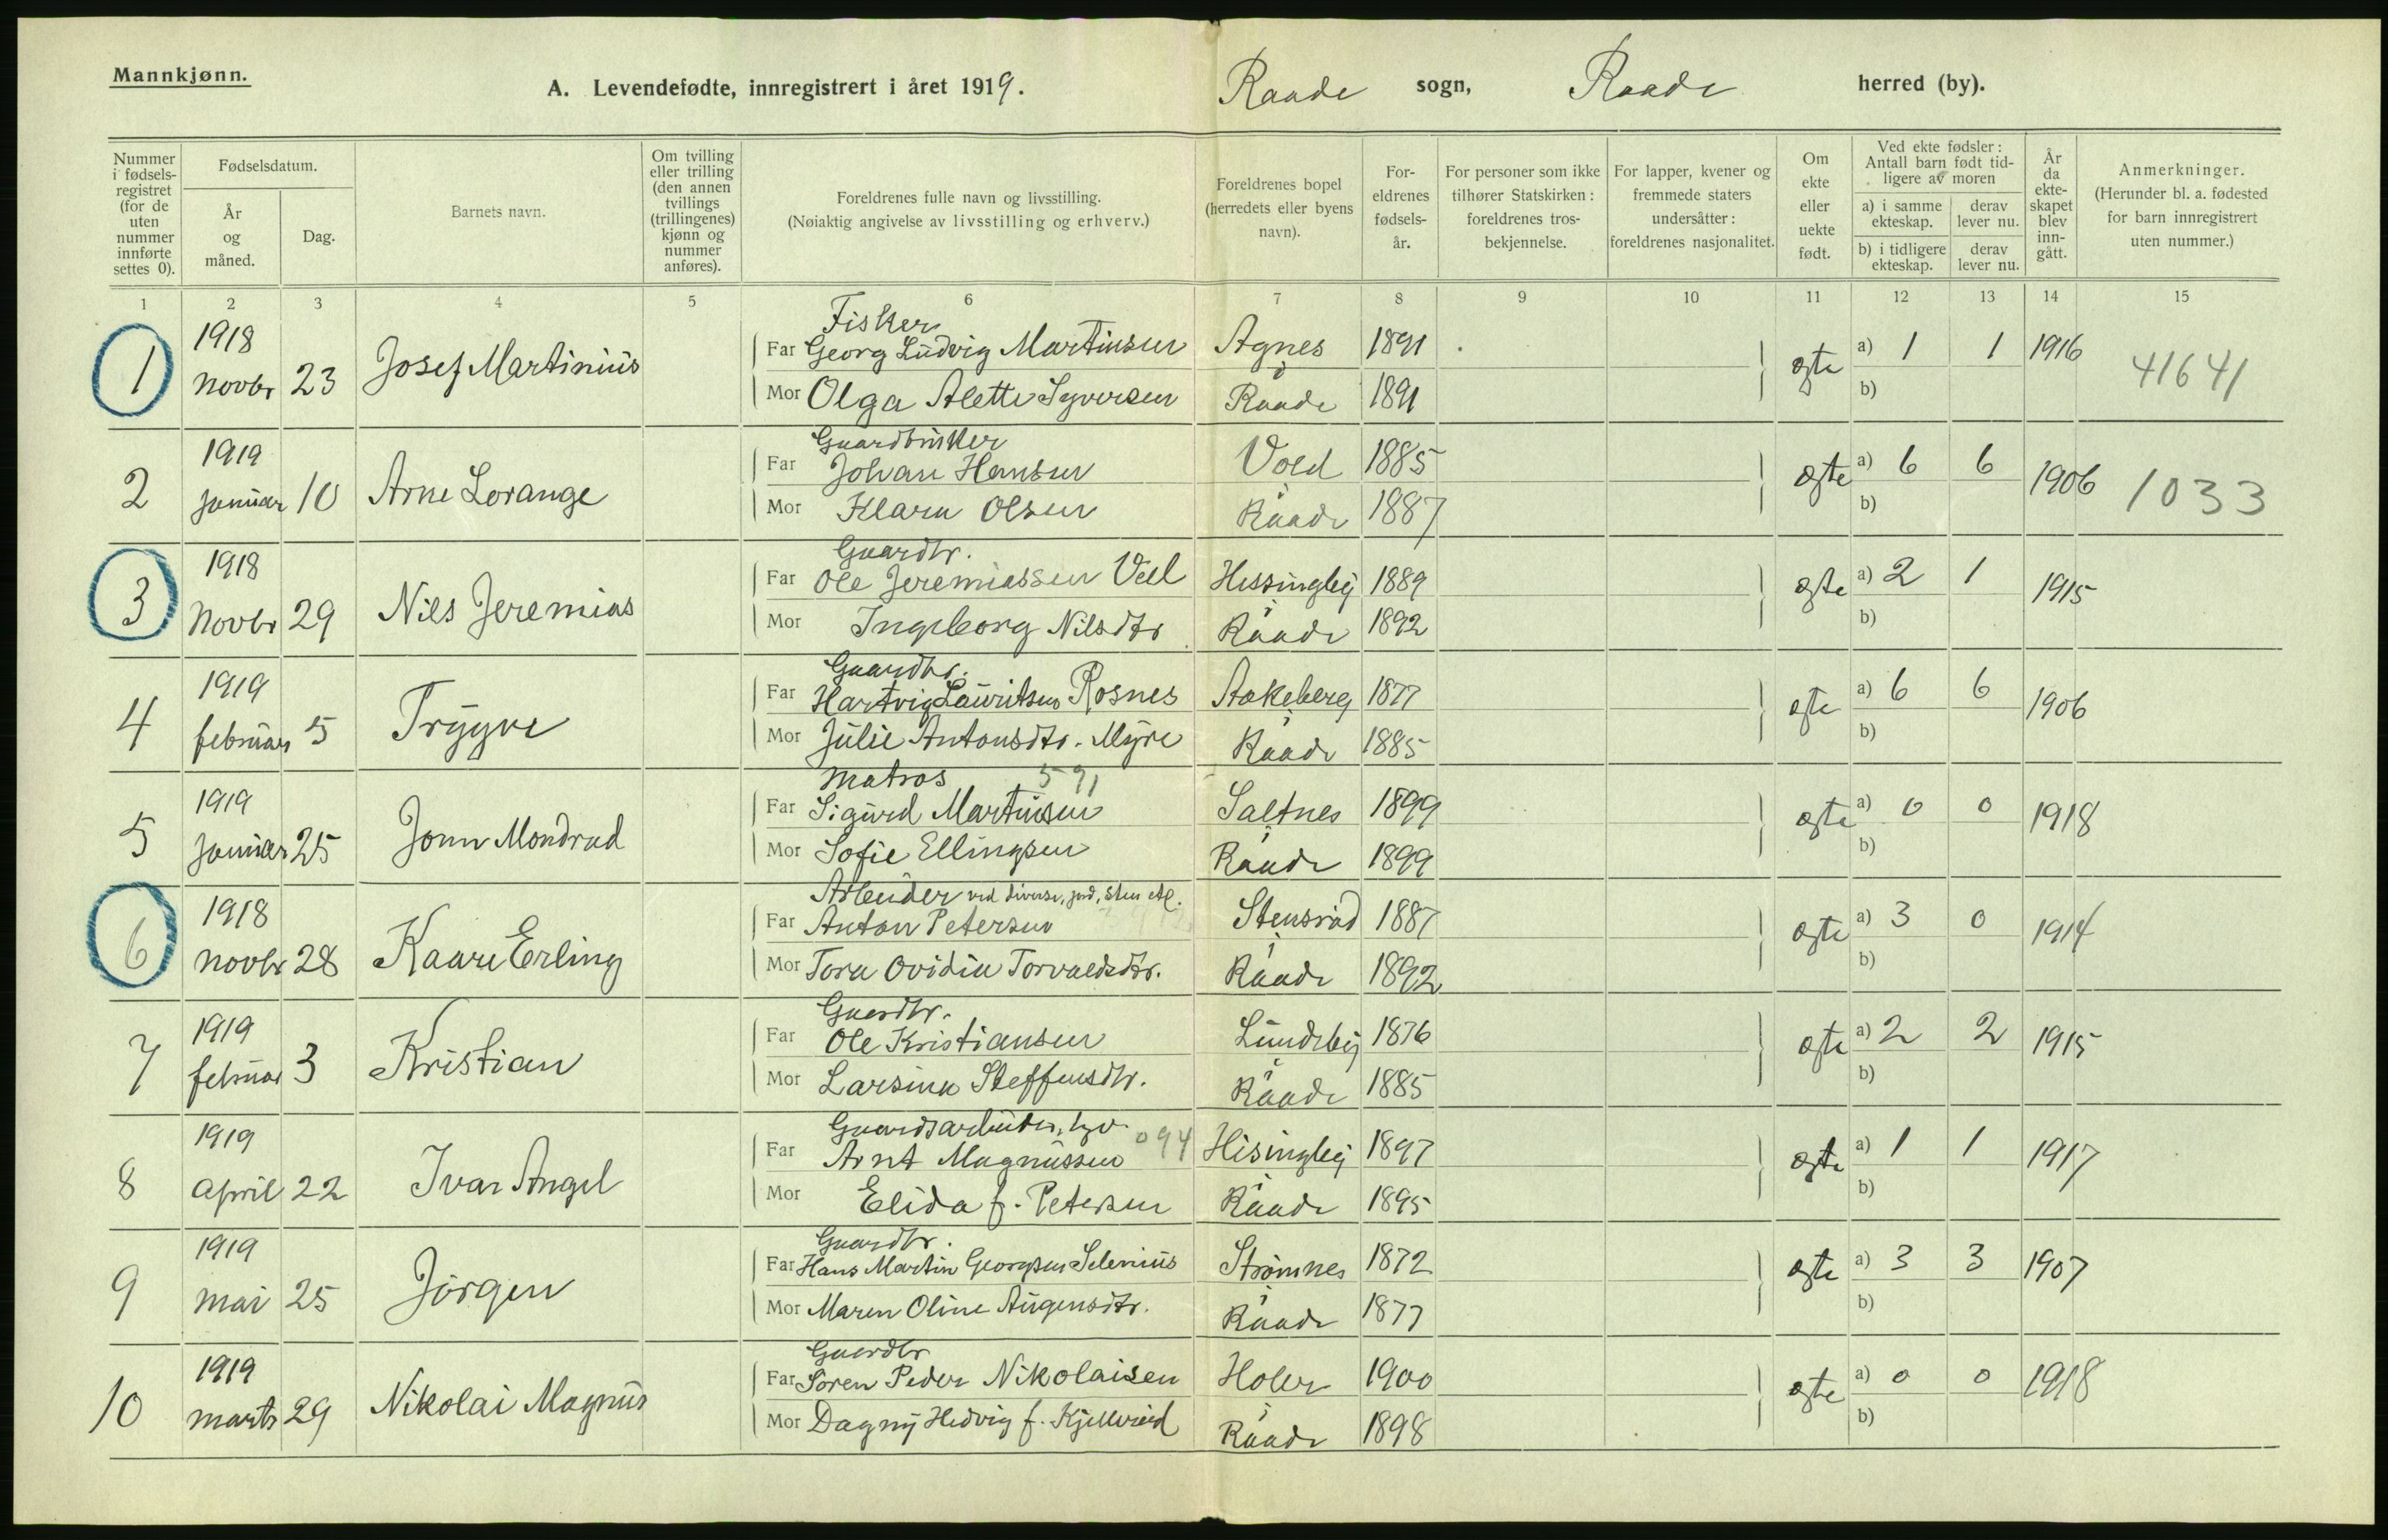 Mannkjønn.
A. Levendefødte, innregistrert i året 1919.
Raade sogn, Raade herred (by).
Nummer i fødsels-registret (for de uten nummer innførte settes 0).
Fødselsdatum.
År og måned.
Dag.
Barnets navn.
Om tvilling eller trilling (den annen tvillings (trillingenes) kjønn og nummer anføres).
Foreldrenes fulle navn og livsstilling.
(Nøiaktig angivelse av livsstilling og erhverv.)
Foreldrenes bopel (herredets eller byens navn).
For-eldrenes fødsels-år.
For personer som ikke tilhører Statskirken: foreldrenes tros-bekjennelse.
For lapper, kvener og fremmede staters undersåtter: foreldrenes nasjonalitet.
Om ekte eller uekte født.
Ved ekte fødsler: Antall barn født tid-ligere av moren
a) i samme ekteskap.
derav lever nu.
b) i tidligere ekteskap.
derav lever nu.
År da ekte-skapet blev inn-gått.
Anmerkninger.
(Herunder bl. a. fødested for barn innregistrert uten nummer.)
1 2 3 4 5 6 7 8 9 10 11 12 13 14 15
1918 Fisker
Far Georg Ludvig Martinsen Agnes 1891 a) 1 1 1916
1 Novbr 23 Josef Martinius ægte 41641
Mor Olga Alette Syversen i Raade 1891 b)
1919 Gaardbruker
Far Johan Hansen Vold 1885 a) 6 6
2 Januar 10 Arne Lorange ægte 1906 1033
Mor Klara Olsen i Raade 1887 b)
1918 Gaardbr.
Far Ole Jeremiassen Veel Hissingby 1889 a) 2 1
3 Novbr 29 Nils Jeremias ægte 1915
Mor Ingeborg Nilsdtr i Raade 1892 b)
1919 Gaardbr.
Far Hartvig Lauritsen Rosnes Aakeberg 1877 a) 6 6
4 februar 5 Trygve ægte 1906
Mor Julie Antonsdtr. Myre i Raade 1885 b)
1919 Matros 591
Far Sigurd Martinsen Saltnes 1899 a) 0 0
5 Januar 25 Jonn Mondrad ægte 1918
Mor Sofie Ellingsen i Raade 1899 b)
1918 Arbeider ved diverse, jord, sten etc.
Far Anton Petersen Stensrød 1887 a) 3 0
6 Novbr 28 Kaare Erling ægte 1914
Mor Tora Ovidia Torvaldsdtr. i Raade 1892 b)
1919 Gaardbr.
Far Ole Kristiansen Lundeby 1876 a) 2 2
7 februar 3 Kristian ægte 1915
Mor Larsina Steffensdtr. i Raade 1885 b)
1919 Gaardsarbeider,
Far Arnt Magnussen 094 Hisingby 1897 a) 1 1
8 April 22 Ivar Angel ægte 1917
Mor Elida f. Petersen i Raade 1895 b)
1919 Gaardbr.
Far Hans Martin Georgsen Selenius Strømnes 1872 a) 3 3
9 Mai 25 Jörgen ægte 1907
Mor Maren Oline Augensdtr. i Raade 1877 b)
1919 Gaardbr
Far Sören Peder Nikolaisen Holer 1900 a) 0 0
10 Marts 29 Nikolai Magnus ægte 1918
Mor Dagny Hedvig f. i Raade 1898 b)